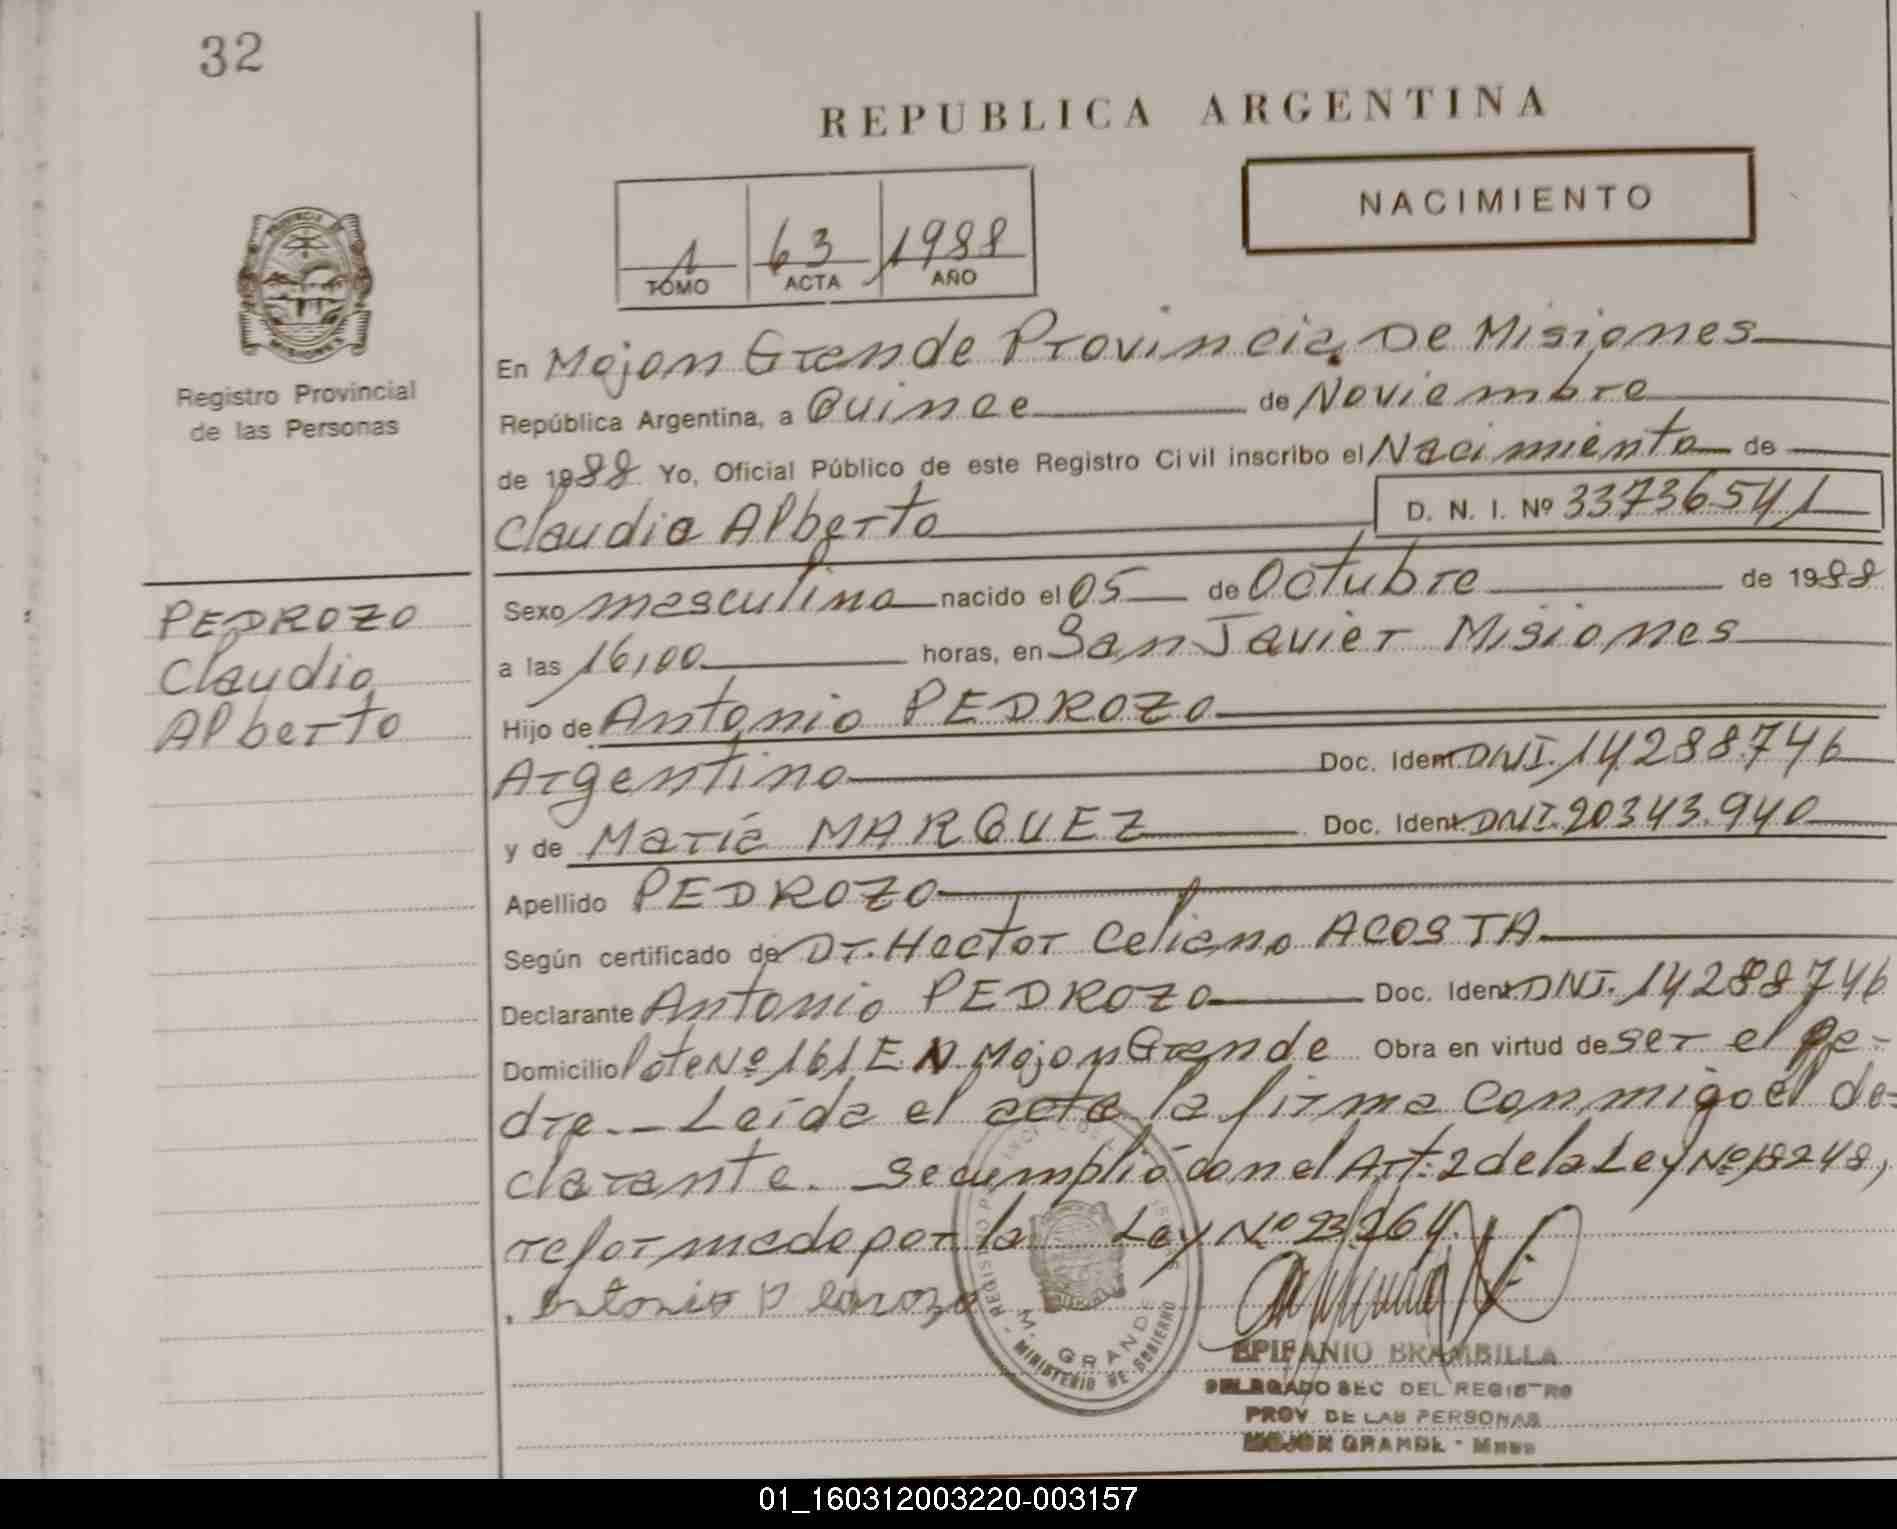 32
REPUBLICA ARGENTINA
NACIMIENTO
1 63 1988
TOMO ACTA AÑO
PROVINCIA
MISIONES
Registro Provincial
de las Personas
En Mojon Grande Provincia De Misiones
República Argentina, a Quince de Noviembre
de 1988 Yo, Oficial Público de este Registro Civil inscribo el Nacimiento de
Claudio Alberto D. N. I. Nº 33736541
PEDROZO
Claudio
Alberto
Sexo masculino nacido el 05 de Octubre de 1988
a las 16,00 horas, en San Javier Misiones
Hijo de Antonio PEDROZO
Argentino Doc. Ident. DNI. 14.288.746
y de Maria MARQUEZ Doc. Ident. DNI. 20343.940
Apellido PEDROZO
Según certificado de Dr. Hector Celiano ACOSTA
Declarante Antonio PEDROZO Doc. Ident. DNI. 14288746
Domicilio lote Nº 161 EN Mojon Grande Obra en virtud de ser el pa-
dre.- Leida el acta la firma conmigo el de-
clarante. Se cumplió con el Art. 2 de la Ley Nº 18248,
reformado por la Ley Nº 23264.
Antonio Pedrozo
M. GRANDE
MINISTERIO DE GOBIERNO
EPIFANIO BRAMBILLA
DELEGADO SEC DEL REGISTRO
PROV DE LAS PERSONAS
MOJON GRANDE - Mnes
01_160312003220-003157